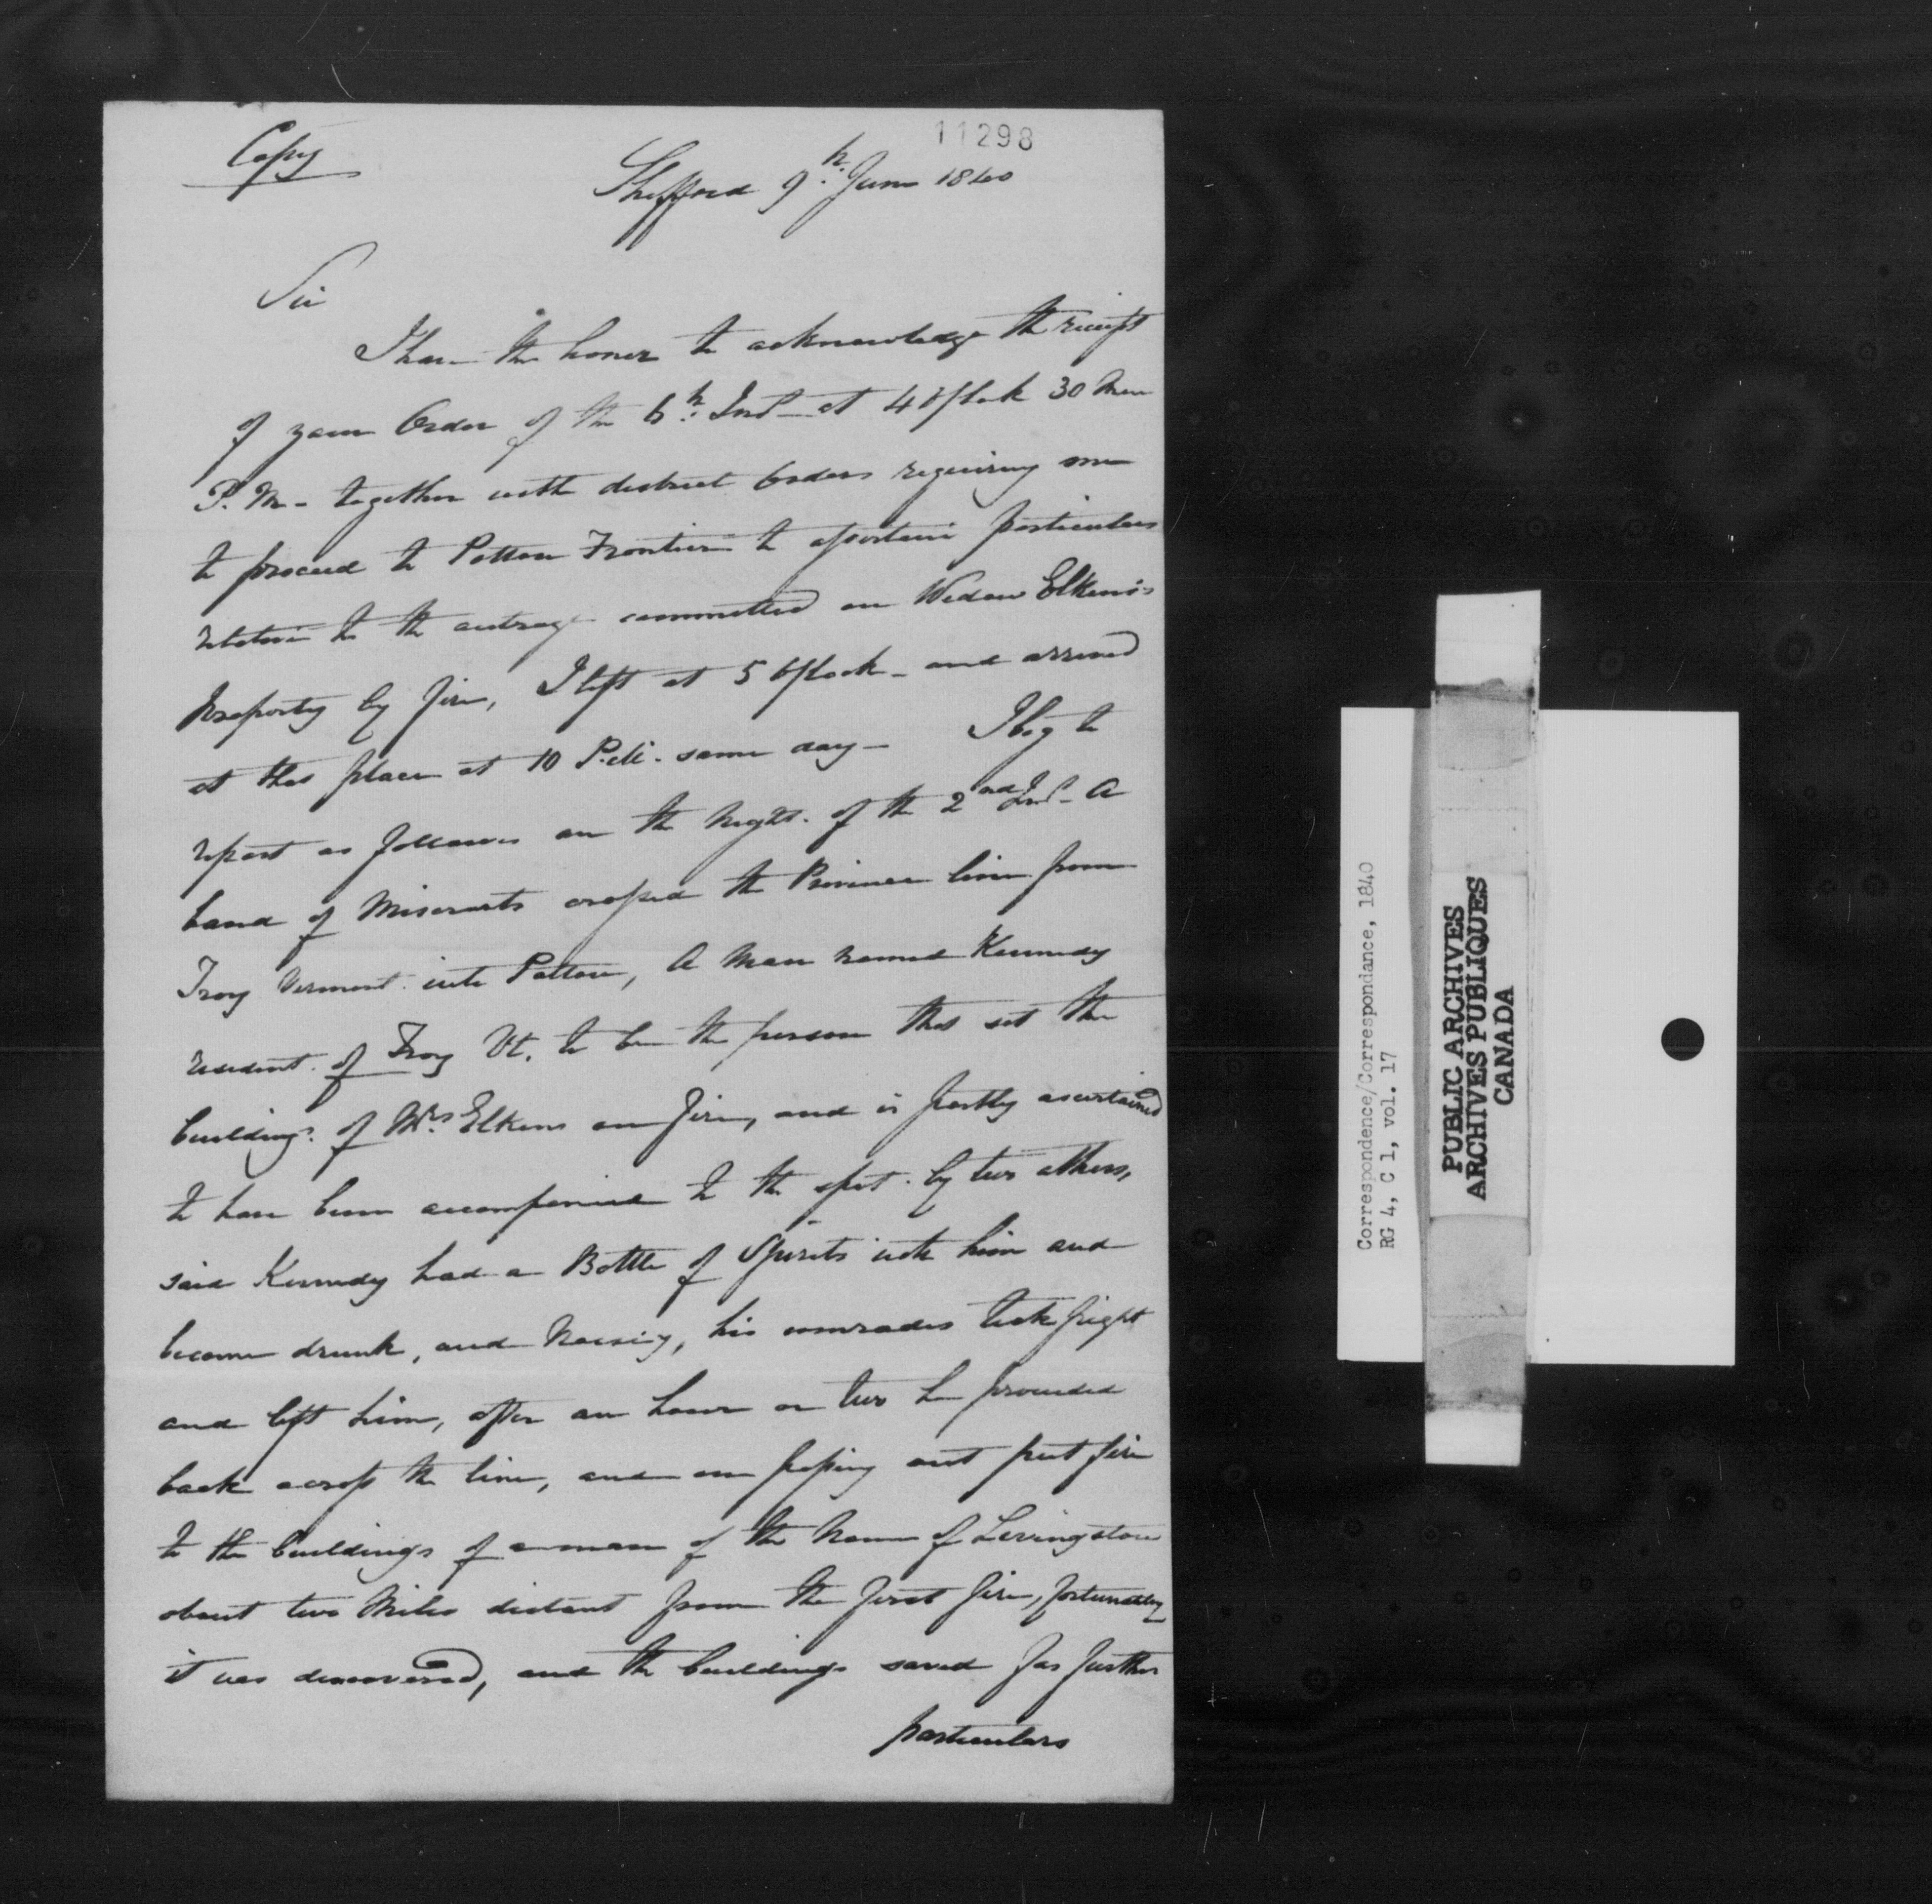 11298
Copy
Shefford 9.h June 1840
Sir
I have the honor to acknowledge the receipt
of your Order of the 6.h Inst- at 4 oClock 30 Men
P.M- together with district Orders requiring me
to proceed to Potton Frontier to assertain particulars
relative to the outrage committed on Widow Elkens's
Property by fire, I left at 5 oClock- and arrived
at this place at 10 P.M. same day- I beg to
report as follows on the Night of the 2nd Inst- A
band of Miscreants crossed the Province line from
Troy Vermont into Potton, A Man named Kennedy
resident of Troy Vt. to be the person that set the
buildings of Mrs Elkens on fire, and is partly ascertained
to have been accompanied to the spot by two others,
said Kennedy had a Bottle of Spirits with him and
become drunk, and Noisey, his comrades took fright
and left him, after an hour or two he proceeded
back across the line, and on passing out put fire
to the buildings of a man of the Name of Levingston
about two Miles distant from the first fire, fortunately
it was discovered, and the buildings saved for further
particulars
Correspondence/Correspondance, 1840
RG 4, C 1, vol. 17
PUBLIC ARCHIVES
ARCHIVES PUBLIQUES
CANADA